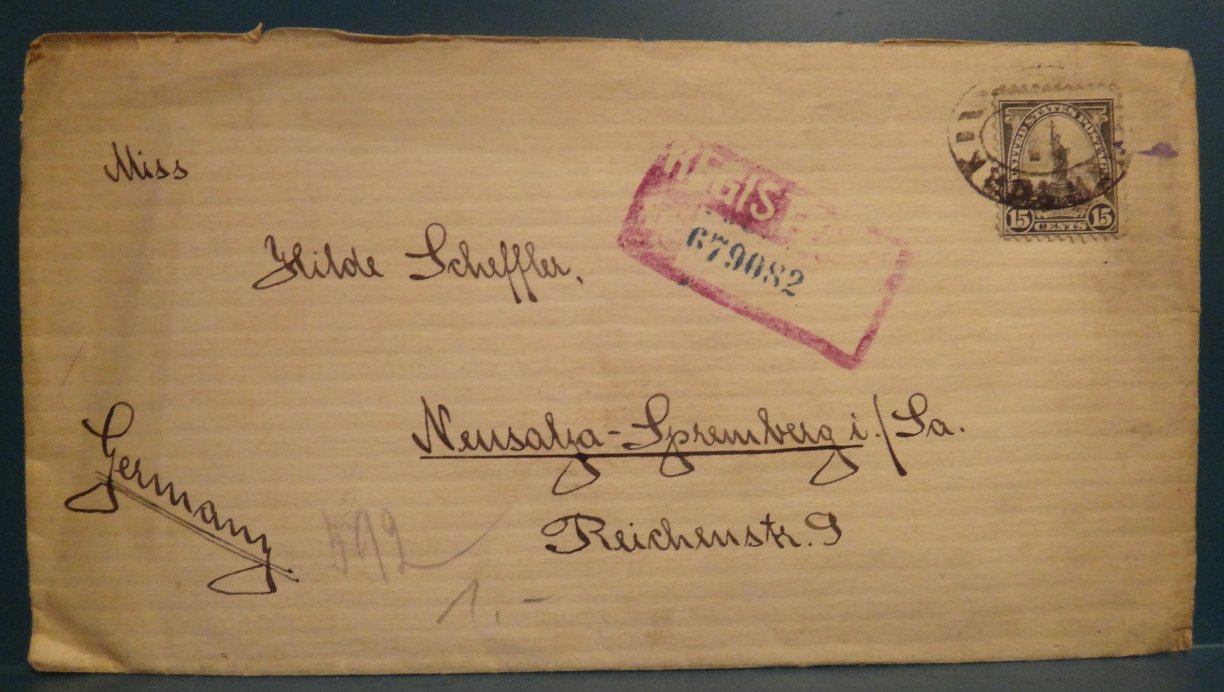 UNITED STATES POSTAGE
15 CENTS 15
Miss
REGIS
679082
Hilde Scheffler.
Neusalza-Spremberg i./Sa.
Germany
Reichenstr. 9
592
1.-